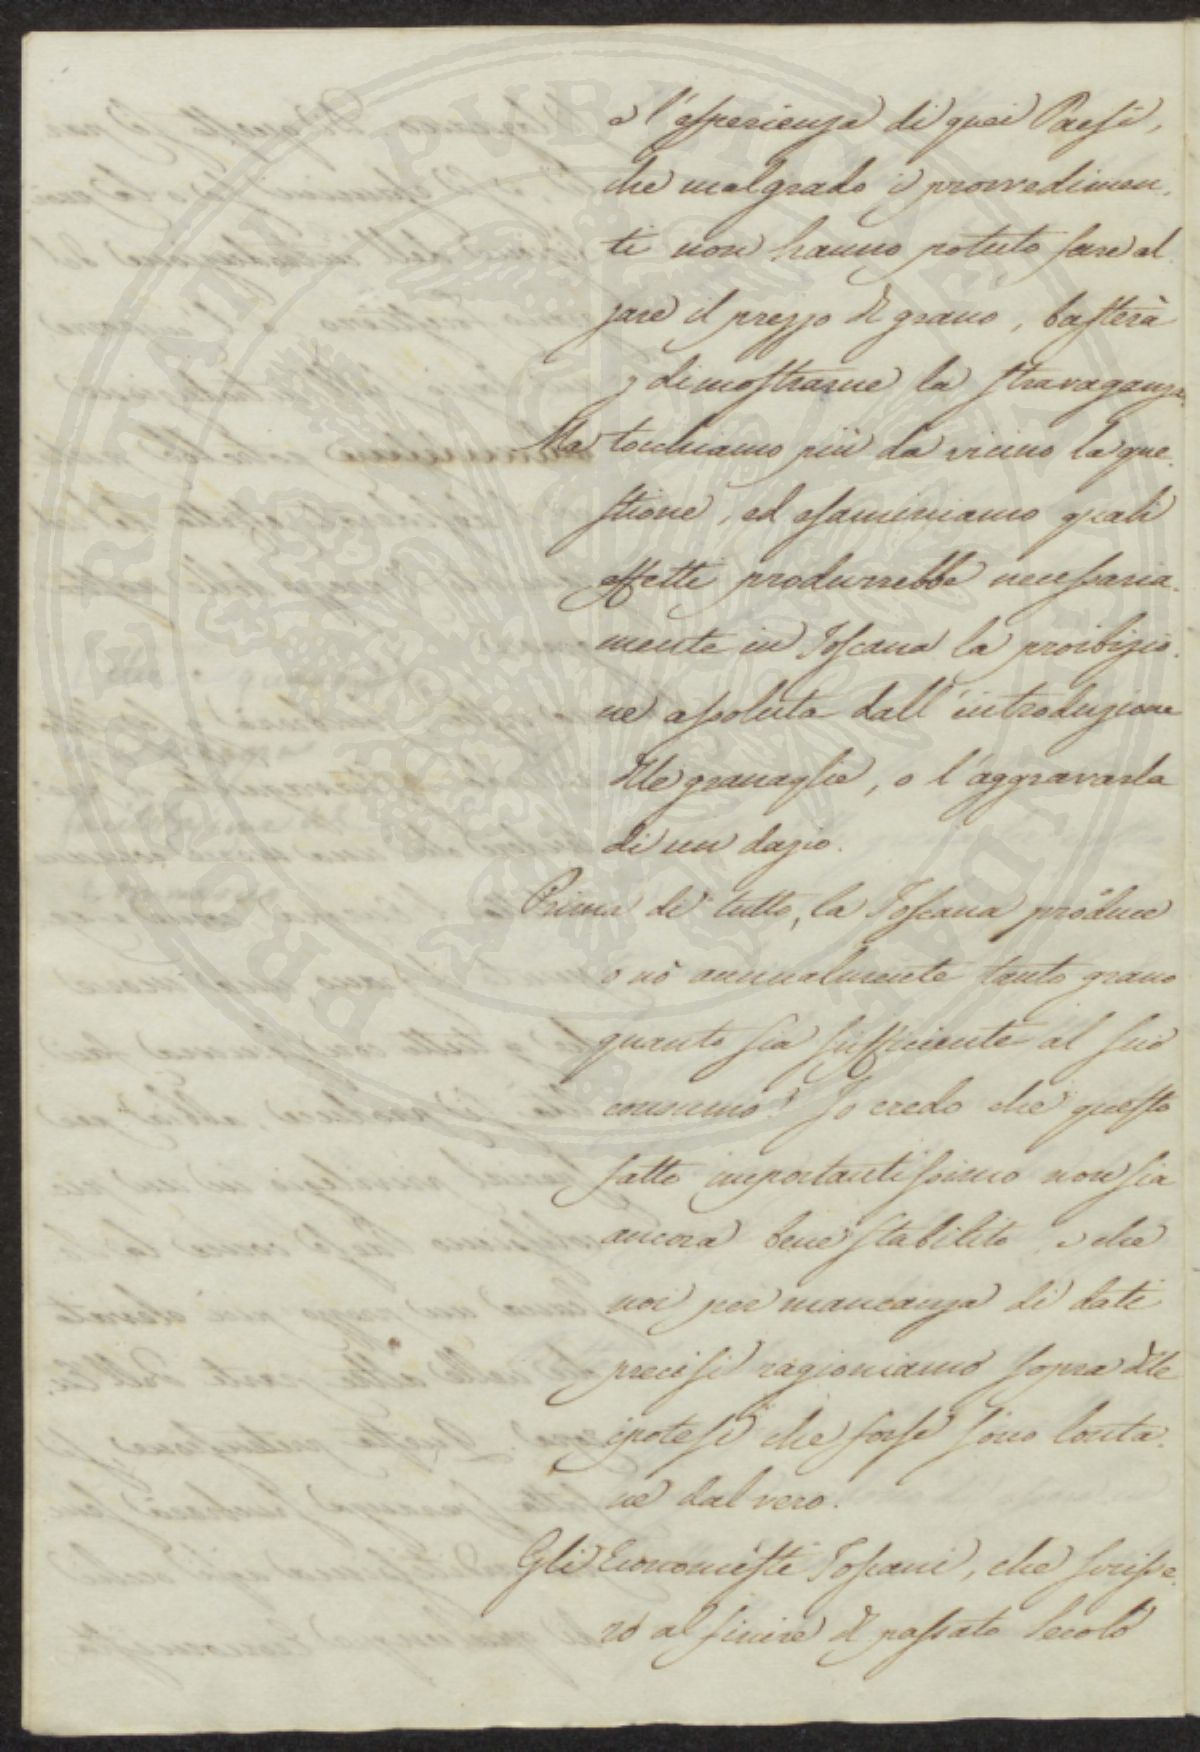 e l'esperienza di quei Paesi,
che malgrado i provvedimen-
ti non hanno potuto fare al-
zare il prezzo dl grano, basterà
p dimostrarne la stravaganza.
Ma tocchiamo più da vicino la que-
stione, ed esaminiamo quali
effetti produrrebbe necessaria-
mente in Toscana la proibizio-
ne assoluta dall'introduzione
dlle granaglie, o l'aggravarla
di un dazio.
Prima di tutto, la Toscana produce
o nò annualmente tanto grano
quanto sia sufficiente al suo
consumo? Io credo che questo
fatto importantissimo non sia
ancora bene stabilito, e che
noi per mancanza di dati
precisi ragioniamo sopra dlle
ipotesi che forse sono lonta-
ne dal vero.
Gli Economisti Toscani, che scrisse-
ro al finire dl passato secolo
PROSPERITATI PUBLICAE AUGENDAE